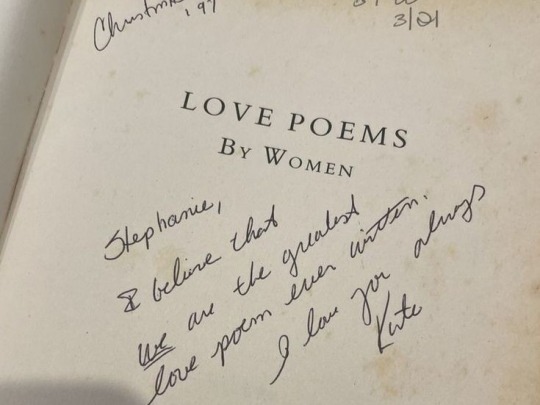 Christmas
'97
3/21
LOVE POEMS
BY WOMEN
Stephanie,
I believe that
We are the greatest
love poem ever written.
I love you always
Kate